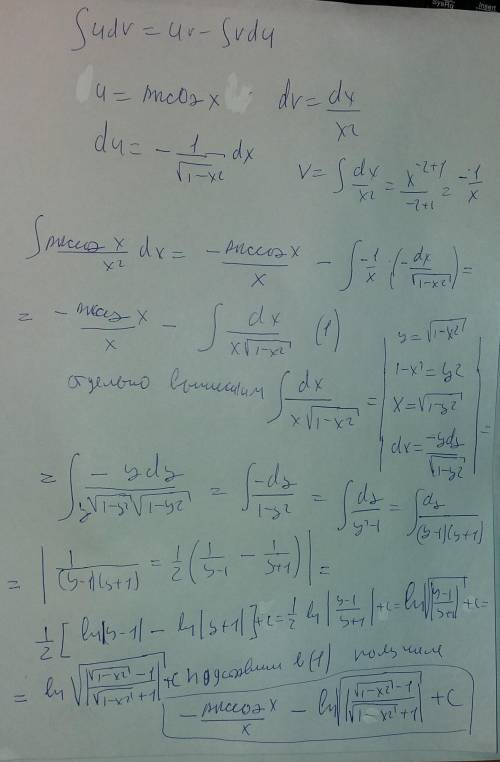 ∫udv = uv - ∫vdu
u = arccos x dv = dx/x²
du = - 1/√(1-x²) dx
v = ∫dx/x² = x^(-2+1)/(-2+1) = -1/x
∫ arccos x/x² dx = - arccos x/x - ∫ -1/x · (-dx/√(1-x²)) =
= - arccos x/x - ∫ dx/(x√(1-x²)) (1)
отдельно вычислим ∫ dx/(x√(1-x²)) = | y = √(1-x²) 1-x² = y² x = √(1-y²) dx = -ydy/√(1-y²) | =
= ∫ -ydy/(y√(1-y²)√(1-y²)) = ∫ -dy/(1-y²) = ∫ dy/(y²-1) = ∫ dy/((y-1)(y+1))
= | 1/((y-1)(y+1)) = 1/2 (1/(y-1) - 1/(y+1)) | =
1/2 [ln|y-1| - ln|y+1|] + c = 1/2 ln|(y-1)/(y+1)| + c = ln√|(y-1)/(y+1)| + c =
= ln√|(√(1-x²) -1)/(√(1-x²) +1)| + c подставим в (1) получим
- arccos x/x - ln√|(√(1-x²) -1)/(√(1-x²) +1)| + C